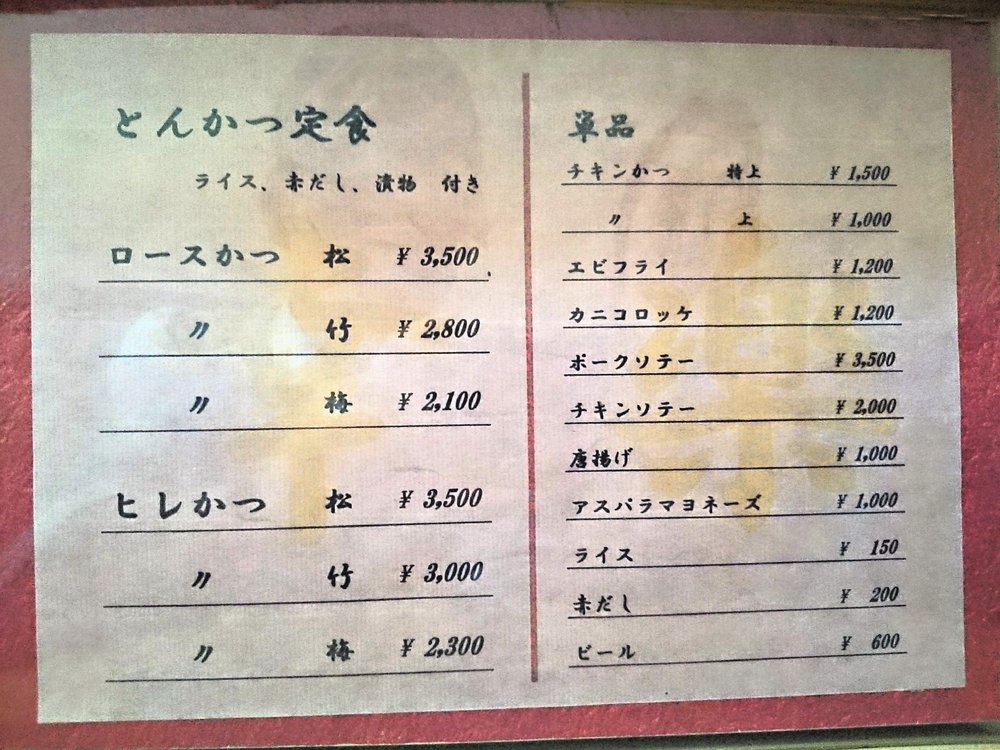 とんかつ定食
ライス、赤だし、漬物 付き
ロースかつ 松 ¥ 3,500
〃 竹 ¥ 2,800
〃 梅 ¥ 2,100
ヒレかつ 松 ¥ 3,500
〃 竹 ¥ 3,000
〃 梅 ¥ 2,300
単品
チキンかつ 特上 ¥ 1,500
〃 上 ¥ 1,000
エビフライ ¥ 1,200
カニコロッケ ¥ 1,200
ポークソテー ¥ 3,500
チキンソテー ¥ 2,000
唐揚げ ¥ 1,000
アスパラマヨネーズ ¥ 1,000
ライス ¥ 150
赤だし ¥ 200
ビール ¥ 600